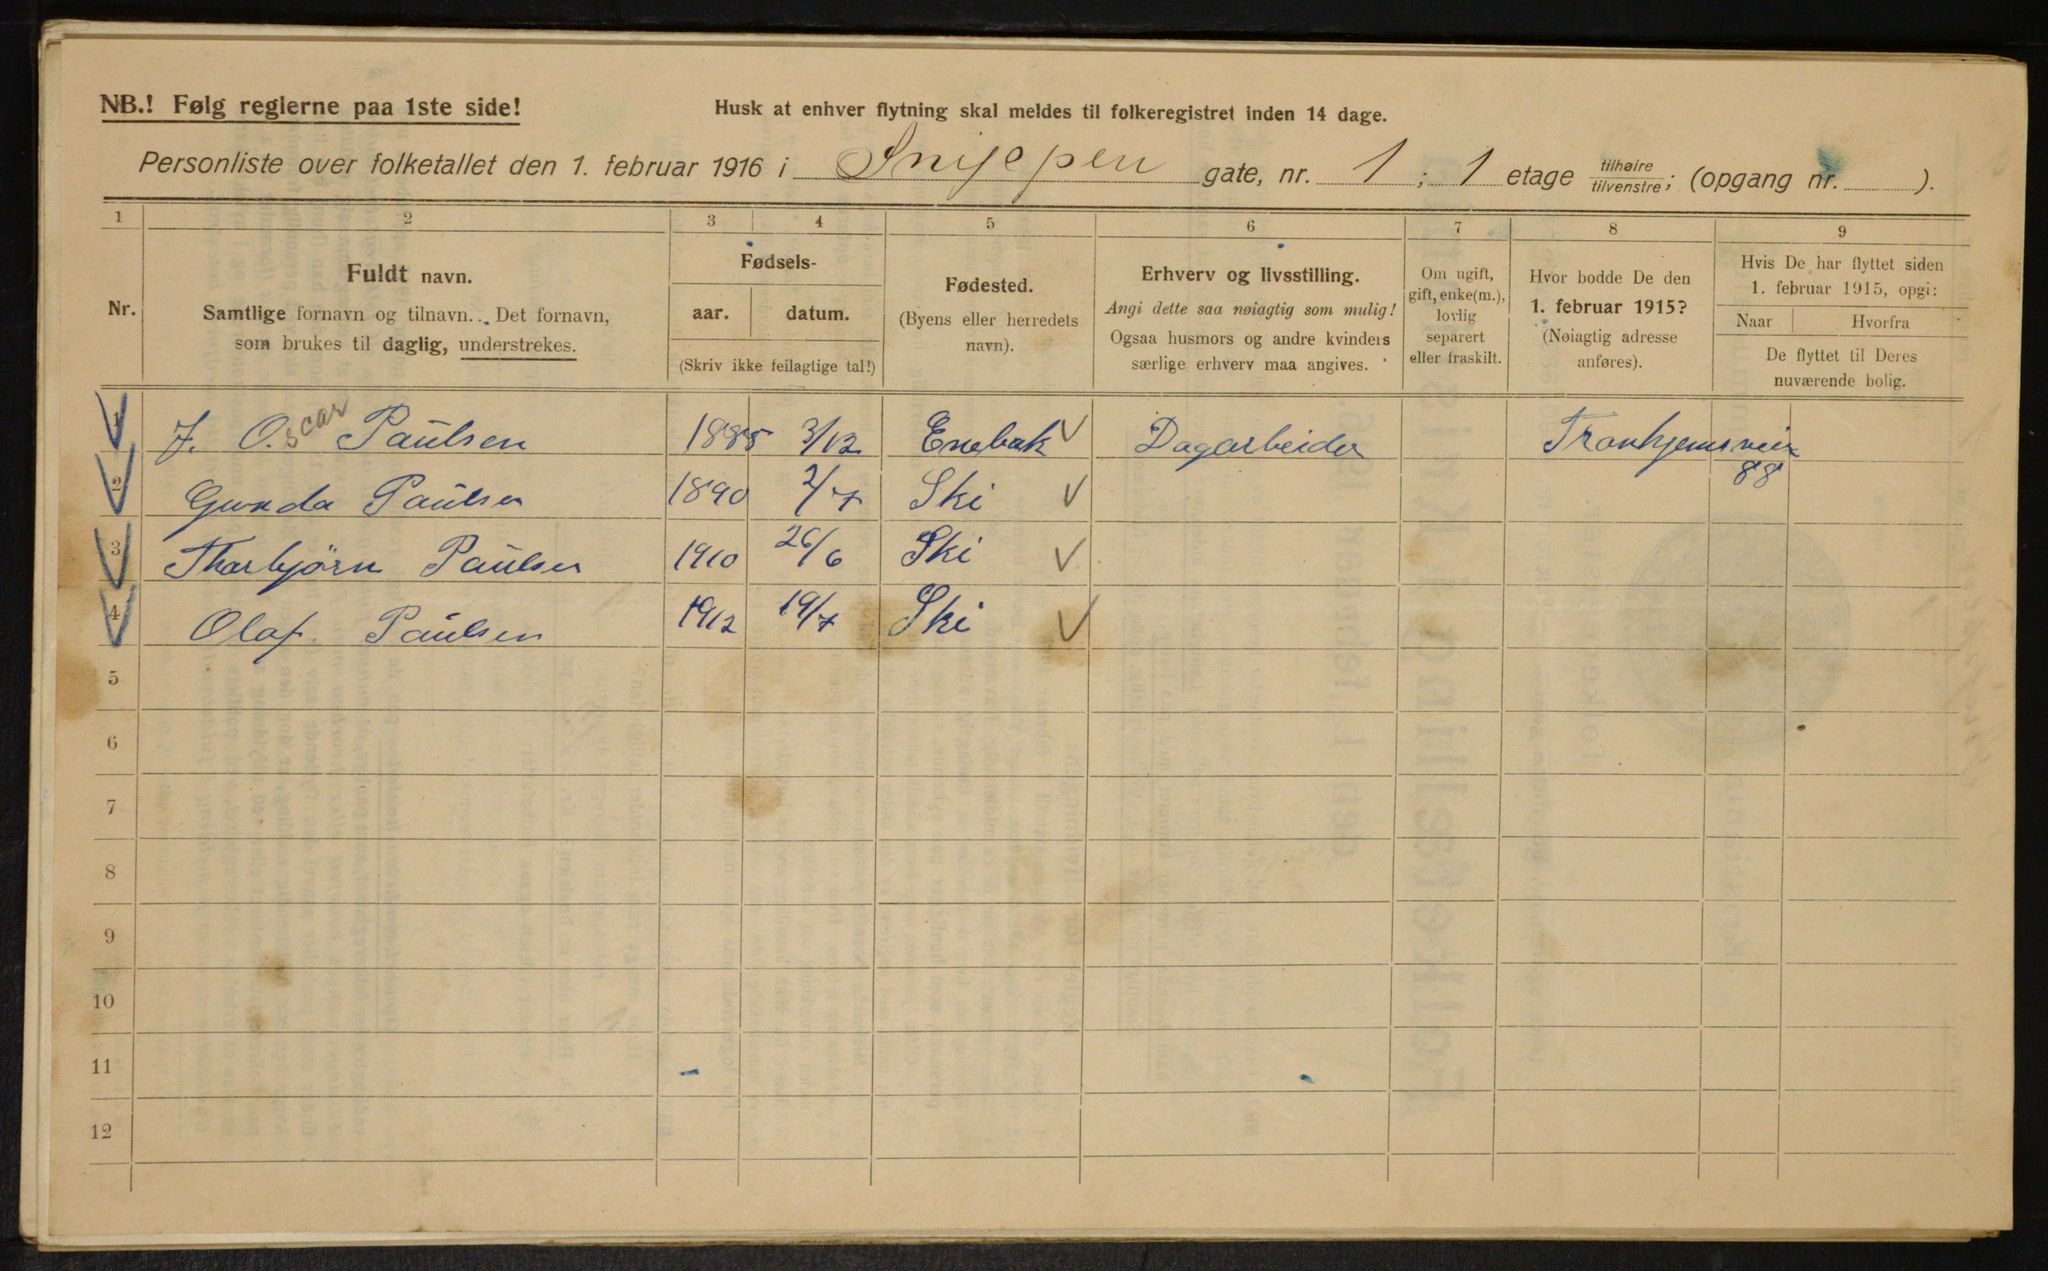 NB.! Følg reglerne paa 1ste side!
Husk at enhver flytning skal meldes til folkeregistret inden 14 dage.
Personliste over folketallet den 1. februar 1916 i Snippen gate, nr. 1; 1 etage tilhøire/tilvenstre; (opgang nr. ).
1 2 3 4 5 6 7 8 9
Nr.
Fuldt navn.
Samtlige fornavn og tilnavn. Det fornavn,
som brukes til daglig, understrekes.
Fødsels-
aar. datum.
(Skriv ikke feilagtige tal!)
Fødested.
(Byens eller herredets
navn).
Erhverv og livsstilling.
Angi dette saa nøiagtig som mulig!
Ogsaa husmors og andre kvinders
særlige erhverv maa angives.
Om ugift,
gift, enke(m.),
lovlig
separert
eller fraskilt.
Hvor bodde De den
1. februar 1915?
(Nøiagtig adresse
anføres).
Hvis De har flyttet siden
1. februar 1915, opgi:
Naar Hvorfra
De flyttet til Deres
nuværende bolig.
1 J. Oscar Paulsen 1885 3/12 Enebak Dagarbeider Tronhjemsveien
88
2 Gunda Paulsen 1890 2/7 Ski
3 Thorbjørn Paulsen 1910 26/6 Ski
4 Olaf. Paulsen 1912 19/7 Ski
5
6
7
8
9
10
11
12